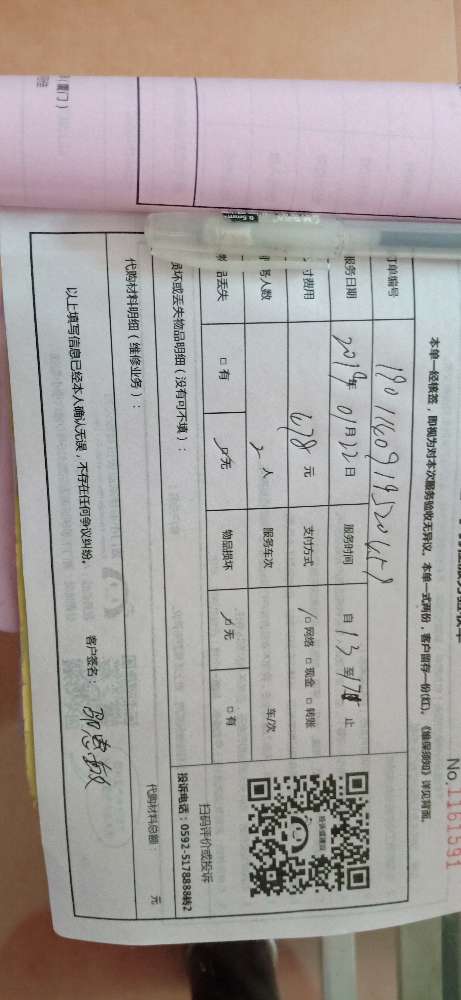 No.11161591
本单一经核签，即视为对本次服务验收无异议。本单一式两份，客户留存一份(红)。《维保须知》详见背面。
单编号
服务日期 2019年 01月22日 服务时间 自 13 至17 止
付费用 678 元 支付方式 □网络 □现金 □转账
人数 2 人 服务车次 车/次
品丢失 □有 □无 物品损坏 □无 □有
损坏或丢失物品明细（没有可不填）：
代购材料明细（维修业务）：
代购材料总额： 元
以上填写信息已经本人确认无误，不存在任何争议纠纷。 客户签名：
扫码评价或投诉
投诉电话：0592-5178888转2
(厦门)
0.5mm